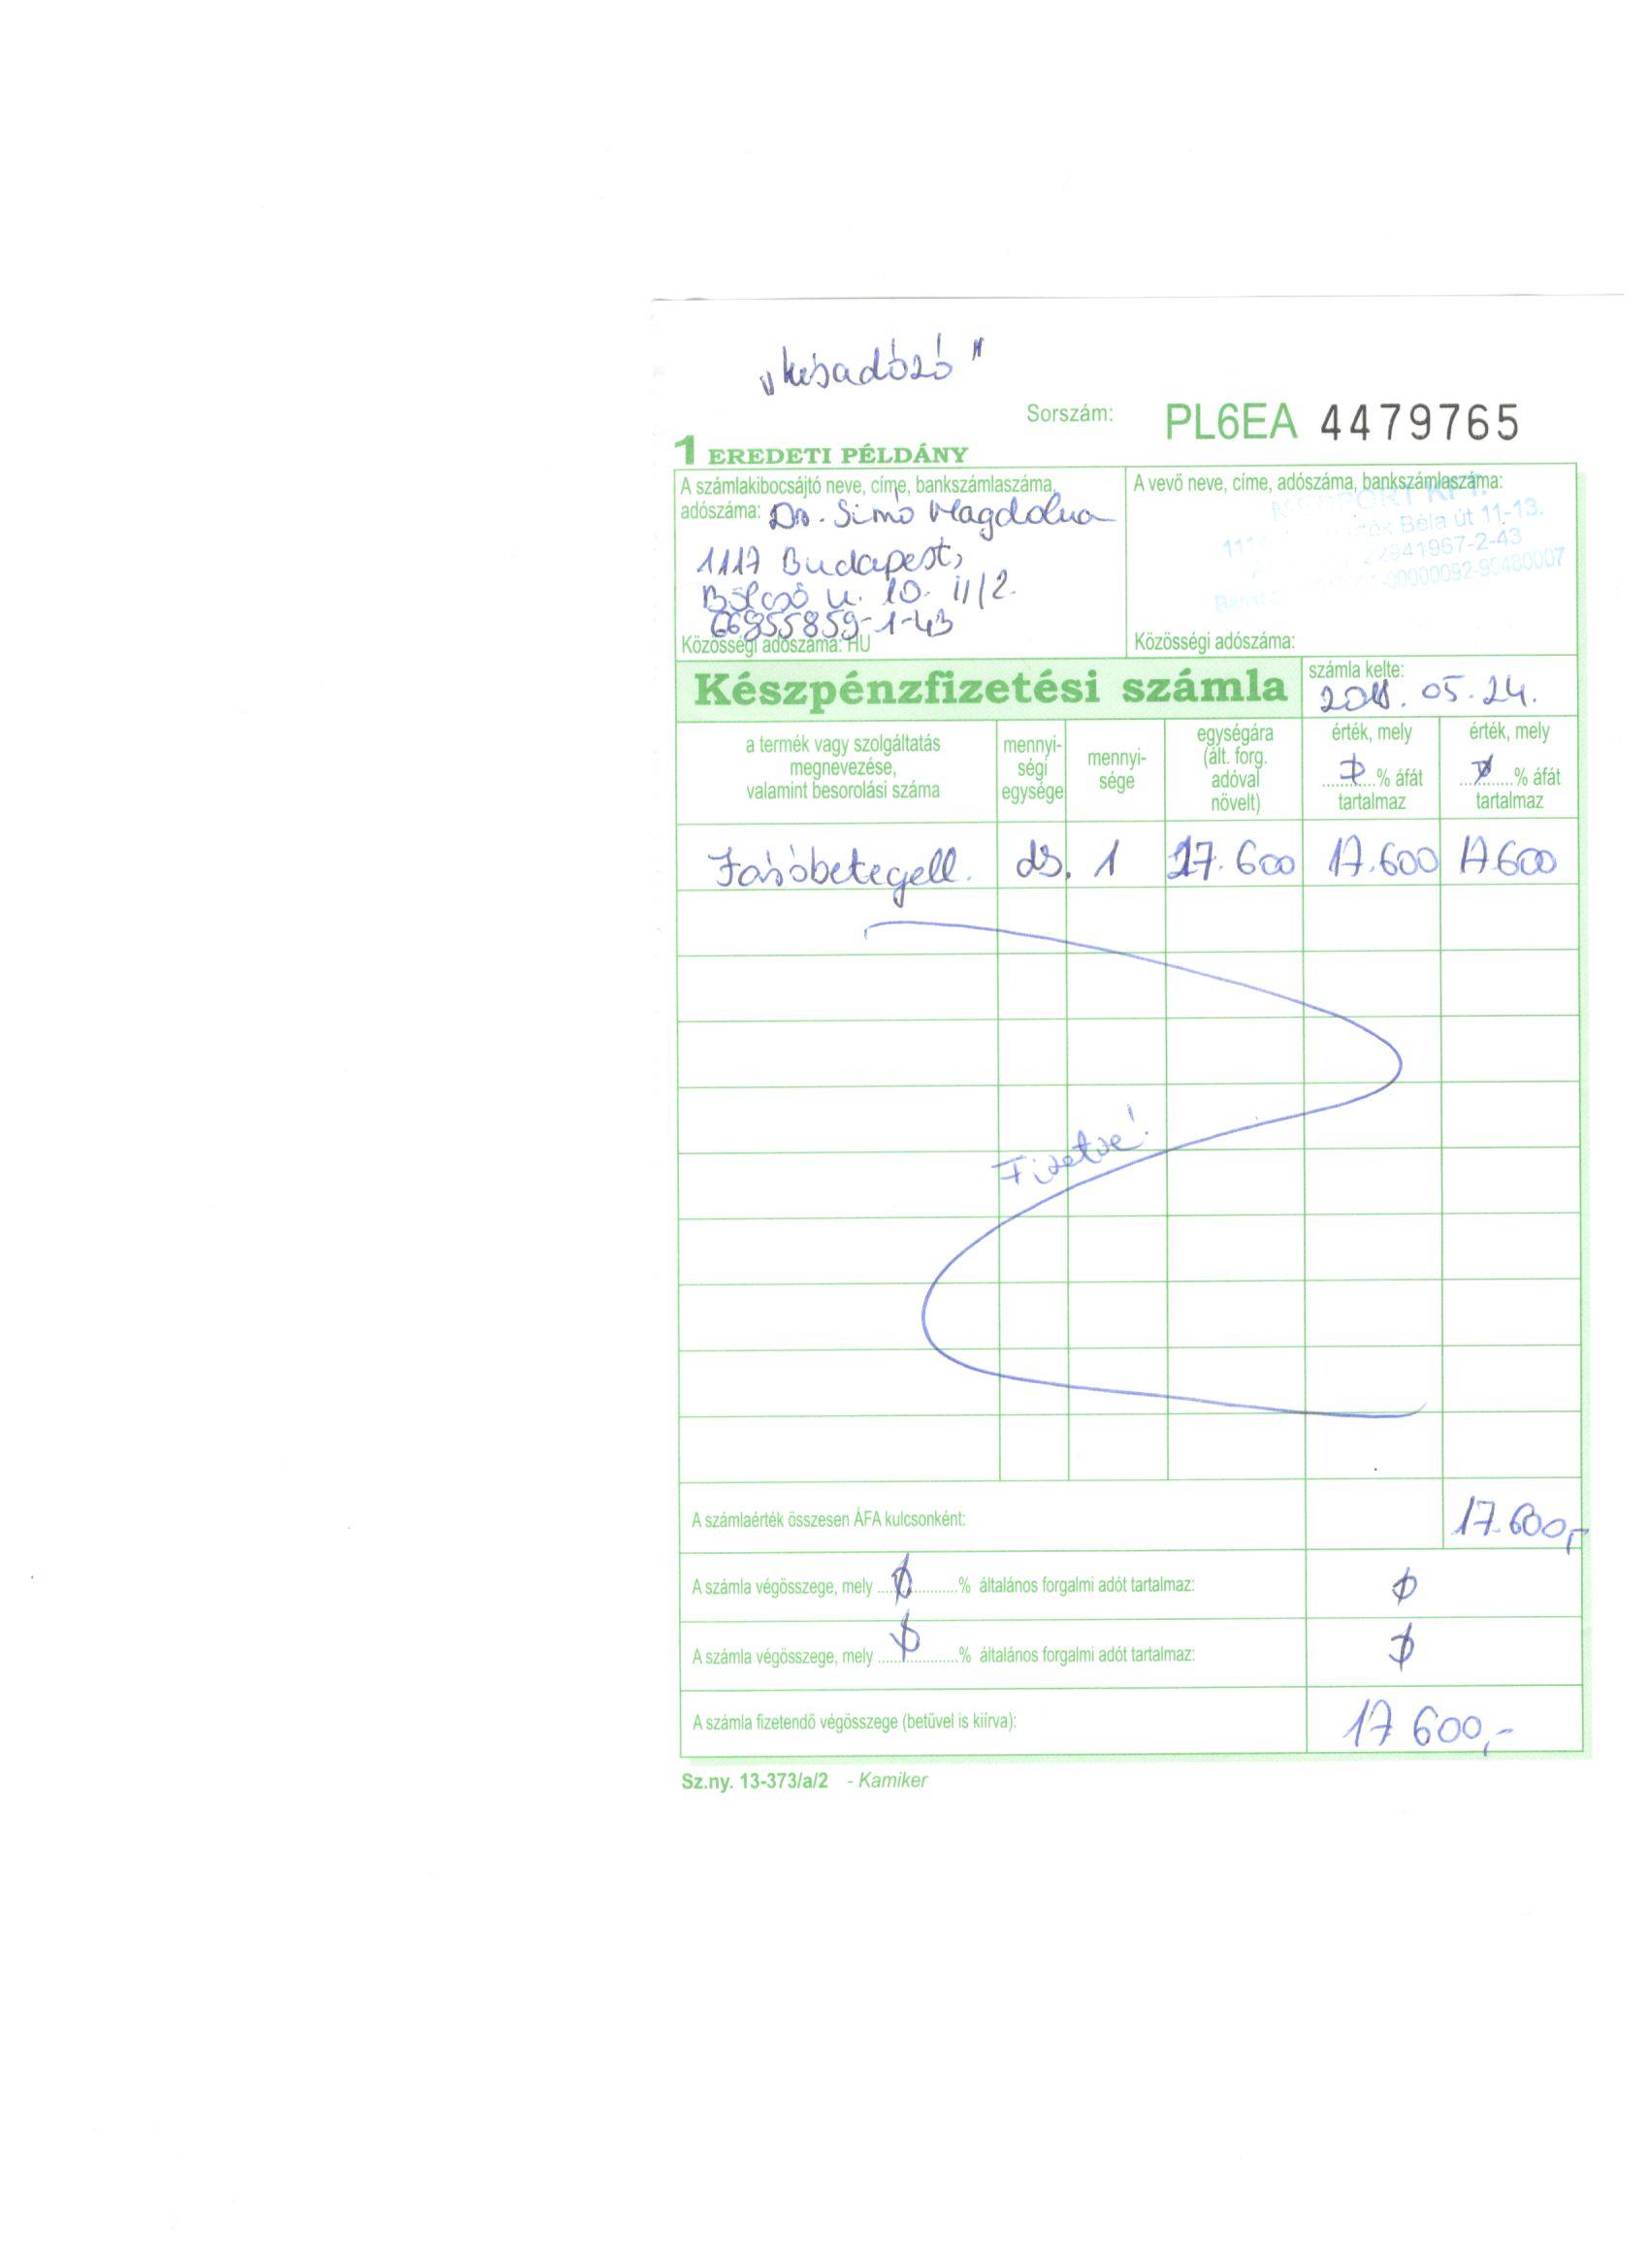 „kisadózó"
Sorszám: PL6EA 4479765
1 EREDETI PÉLDÁNY
A számlakibocsájtó neve, címe, bankszámlaszáma,
adószáma: Dr. Simó Magdolna
1117 Budapest,
Bölcső u. 10. II/2.
66855859-1-43
Közösségi adószáma: HU
A vevő neve, címe, adószáma, bankszámlaszáma:
KFT.
Béla út 11-13.
2941967-2-43
-00000092-90480007
Közösségi adószáma:
Készpénzfizetési számla
számla kelte:
2018. 05. 24.
a termék vagy szolgáltatás
megnevezése,
valamint besorolási száma
mennyi-
ségi
egysége
mennyi-
sége
egységára
(ált. forg.
adóval
növelt)
érték, mely
0 % áfát
tartalmaz
érték, mely
0 % áfát
tartalmaz
Járóbetegell. db. 1 17.600 17.600 17.600
Fizetve!
A számlaérték összesen ÁFA kulcsonként: 17.600,-
A számla végösszege, mely 0 % általános forgalmi adót tartalmaz: 0
A számla végösszege, mely 0 % általános forgalmi adót tartalmaz: 0
A számla fizetendő végösszege (betűvel is kiírva): 17 600,-
Sz.ny. 13-373/a/2 - Kamiker